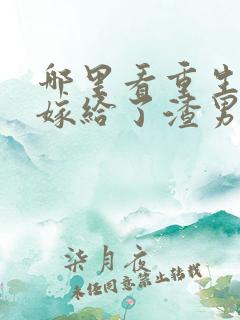 哪里看重生
嫁给了渣男
柒月夜
未经同意禁止转载